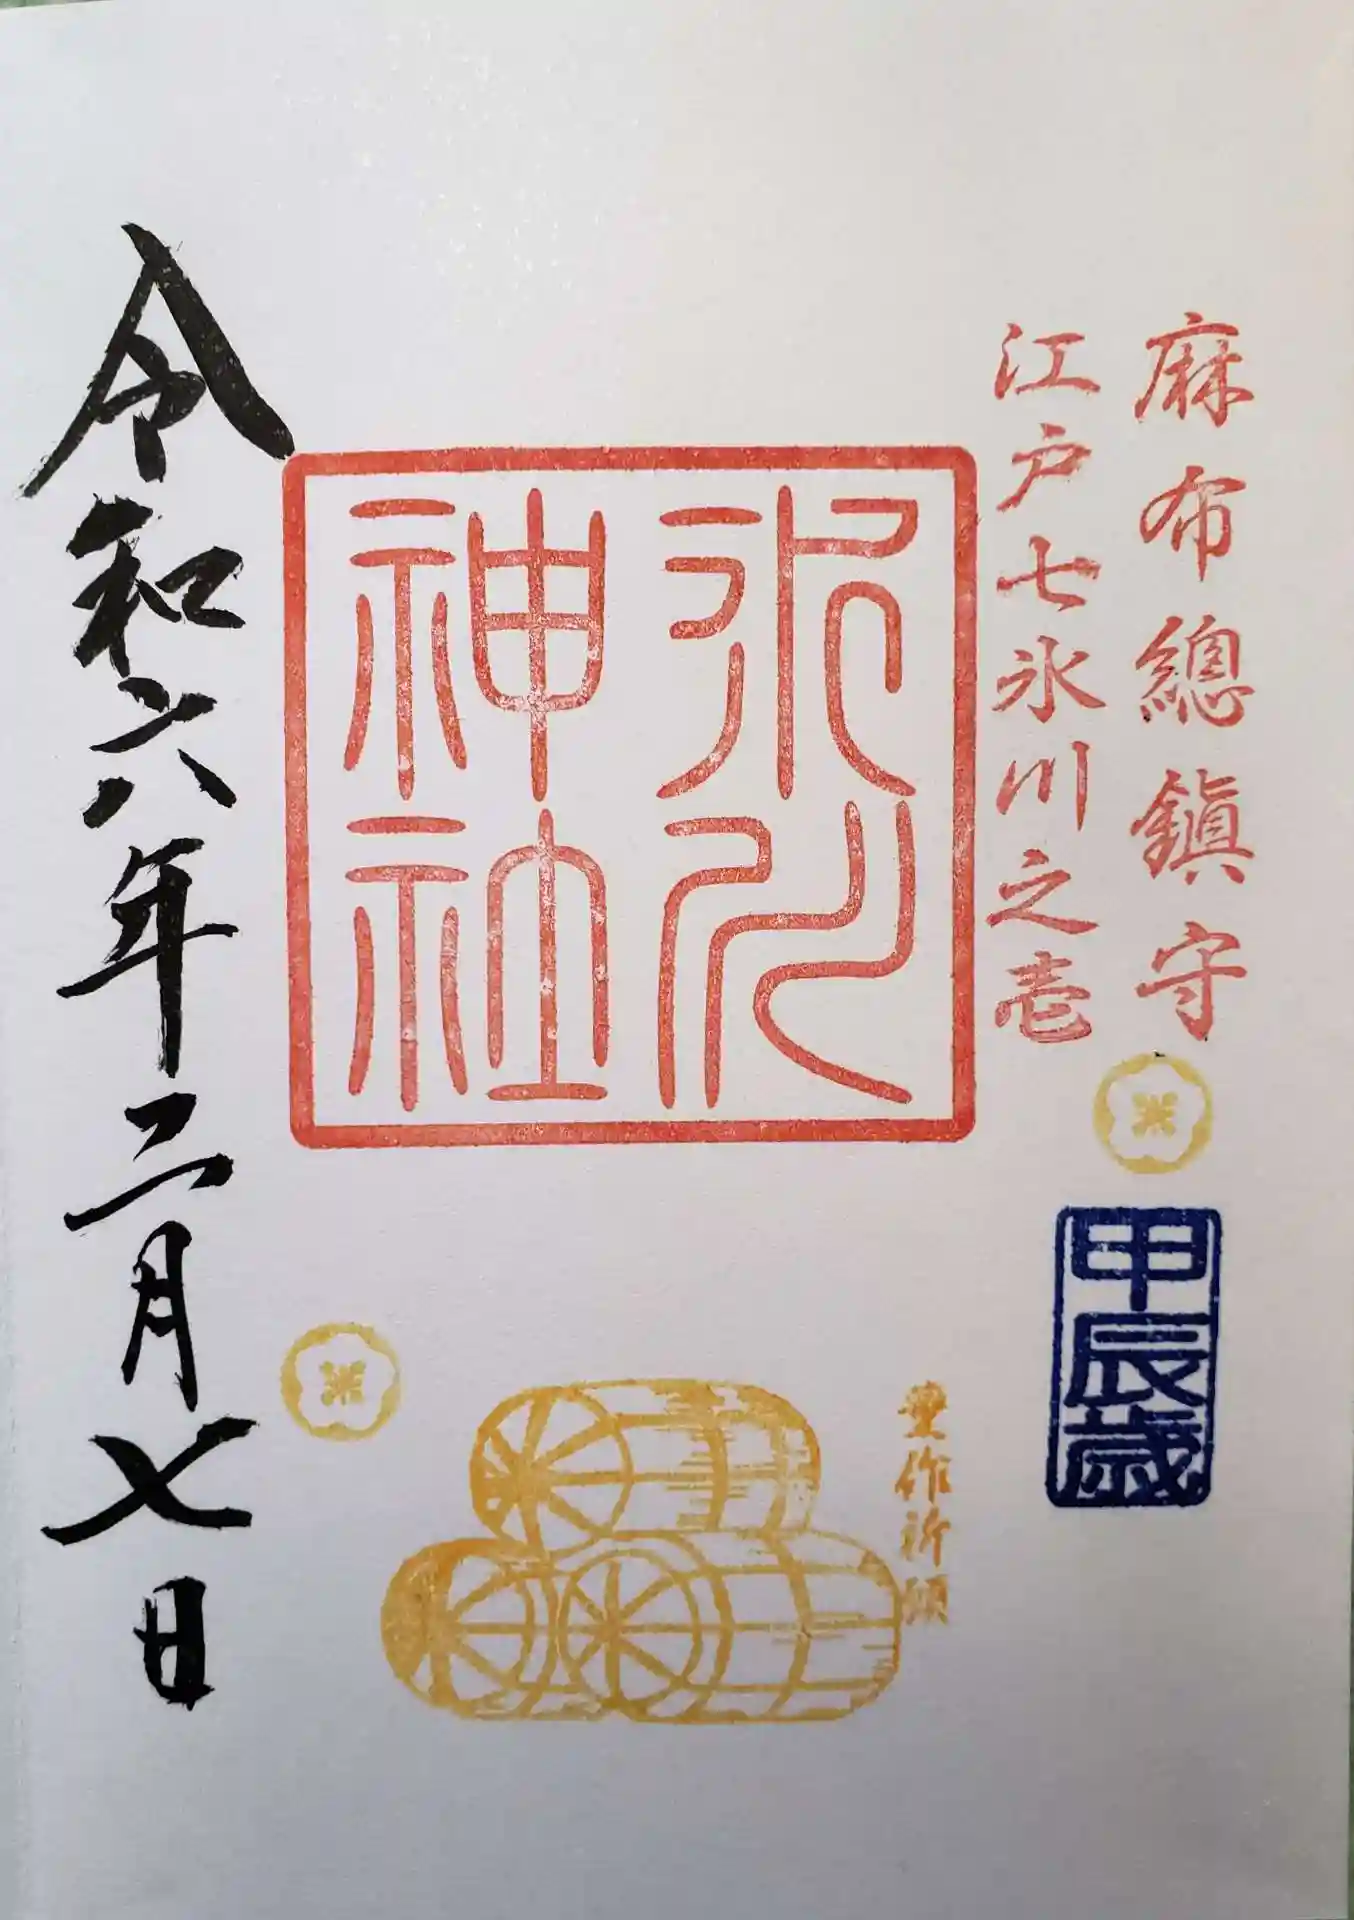 麻布總鎭守
江戸七氷川之壱
氷川
神社
甲辰歳
豊作祈願
令和六年二月七日